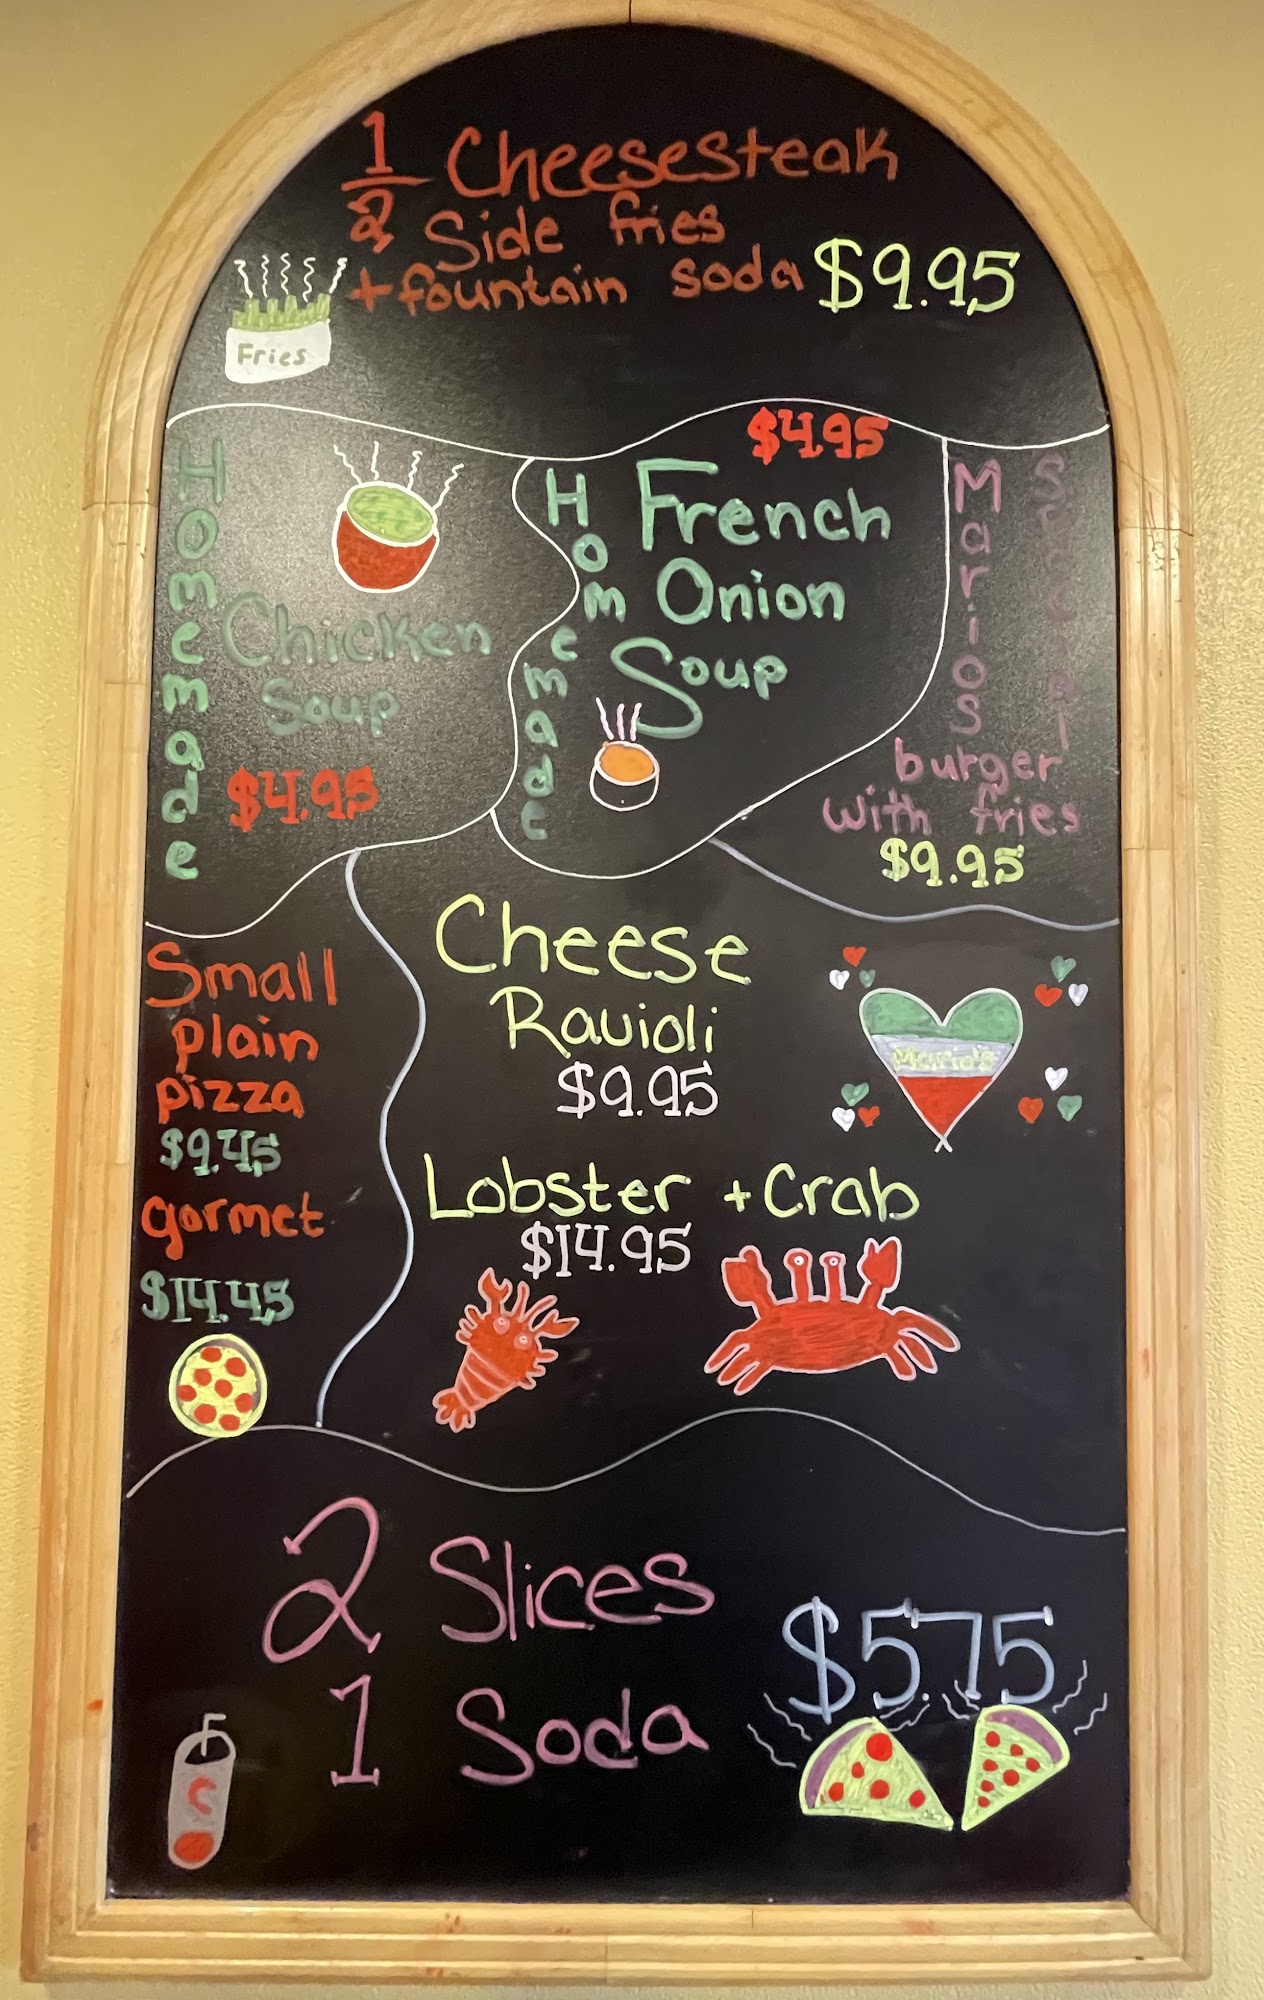 1/2 Cheesesteak
Side fries
+ fountain soda $9.95
Fries
Homemade
Chicken
Soup
$4.95
$4.95
Homemade
French
Onion
Soup
Marios
Special
burger
with fries
$9.95
Small
plain
pizza
$9.45
gormet
$14.45
Cheese
Ravioli
$9.95
Mario's
Lobster + Crab
$14.95
2 Slices
1 Soda
$5.75